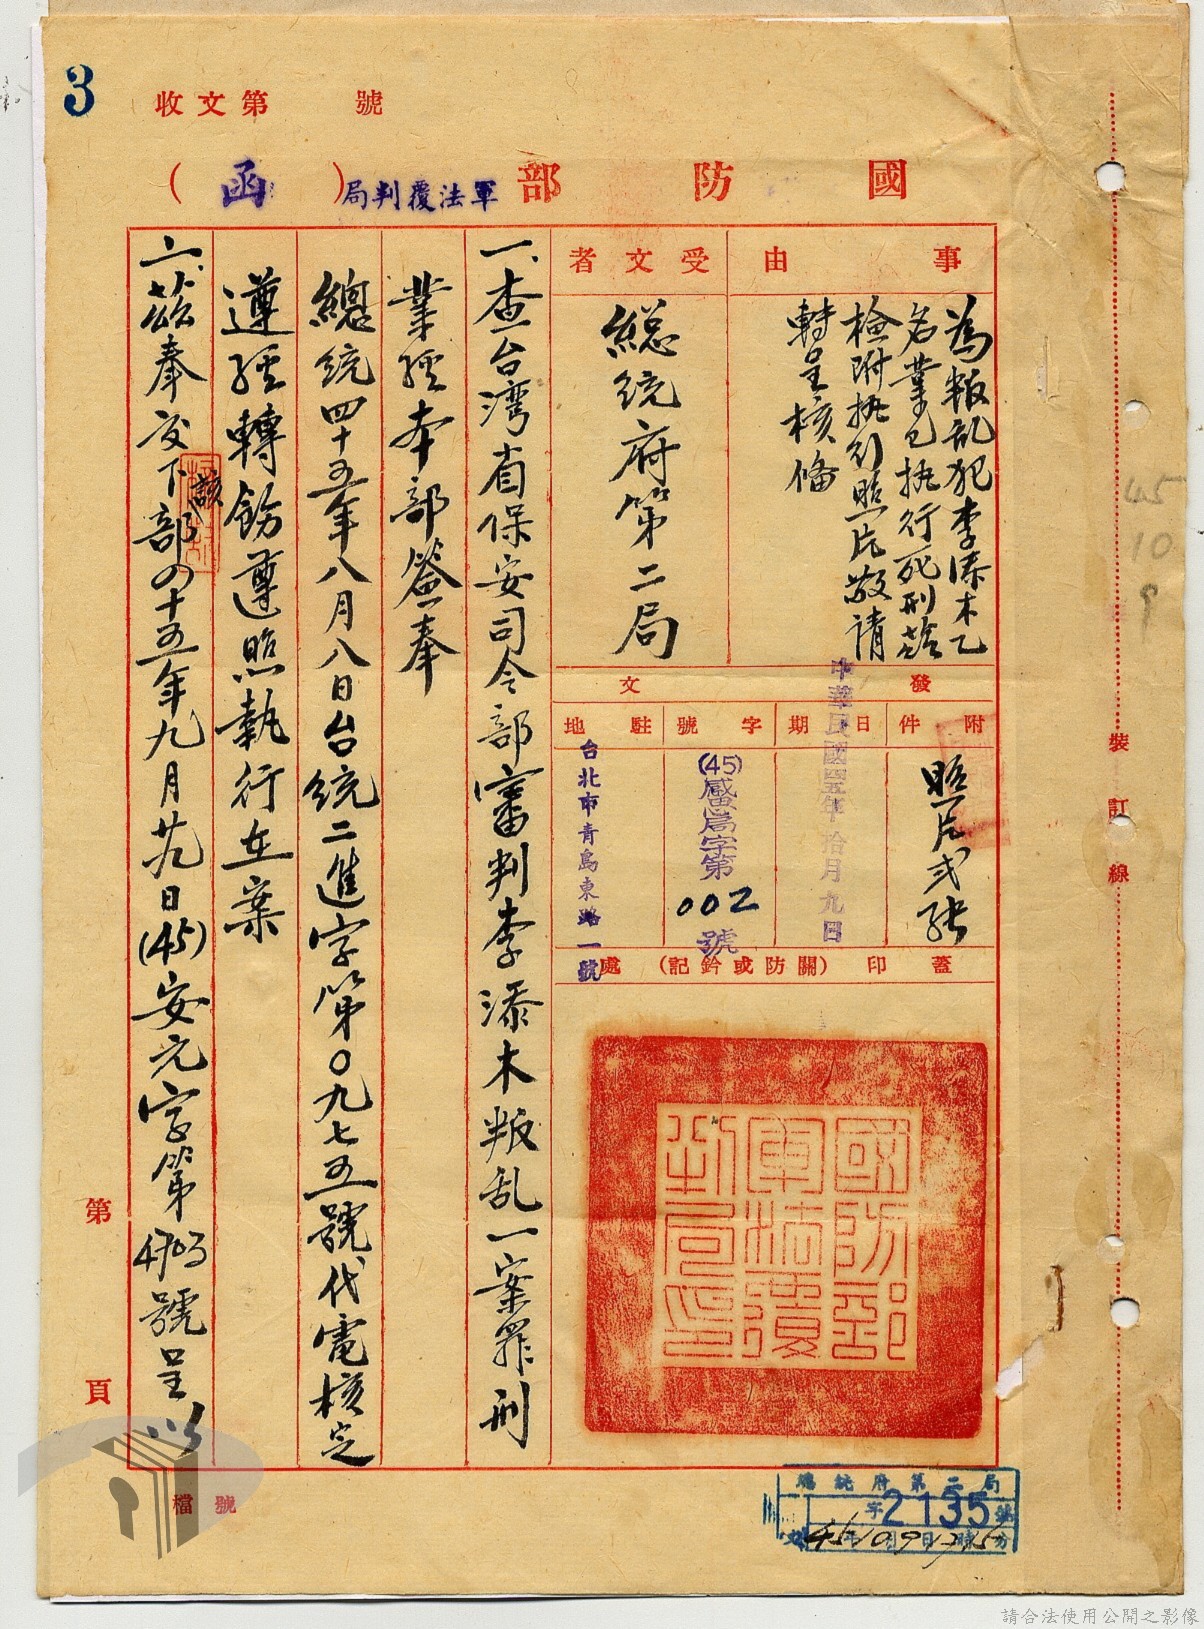 3
收文第 號
國防部軍法覆判局(函)
事由
為叛乱犯李添木乙
名業已執行死刑
檢附執行照片敬請
轉呈核備
受文者
總統府第二局
發文
附件
照片弍張
日期
中華民國四五年拾月九日
字號
(45)局字第002號
駐地
台北市青島東路一號
蓋印(關防或鈐記)處
國防部
軍法覆
判局印
一、查台湾省保安司令部審判李添木叛乱一案罪刑
業經本部簽奉
總統四十五年八月八日台統二進字第0九七五號代電核定
遵經轉飭遵照執行在案
二、茲奉交下該部四十五年九月廿九日(45)安元字第4703號呈以
裝訂線
45
10
9
第 頁
檔號
總統府第二局
字2135號
45年10月9日 時 分
請合法使用公開之影像